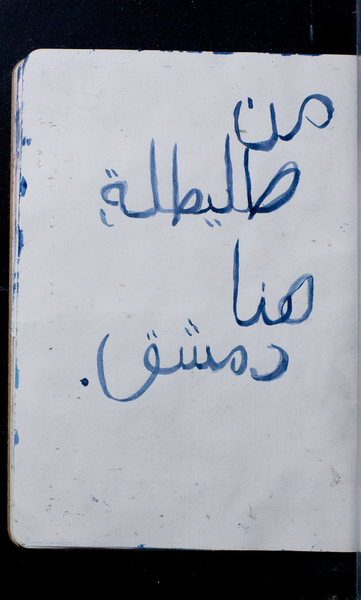 من
طليطلةِ
هنا
دمشق.